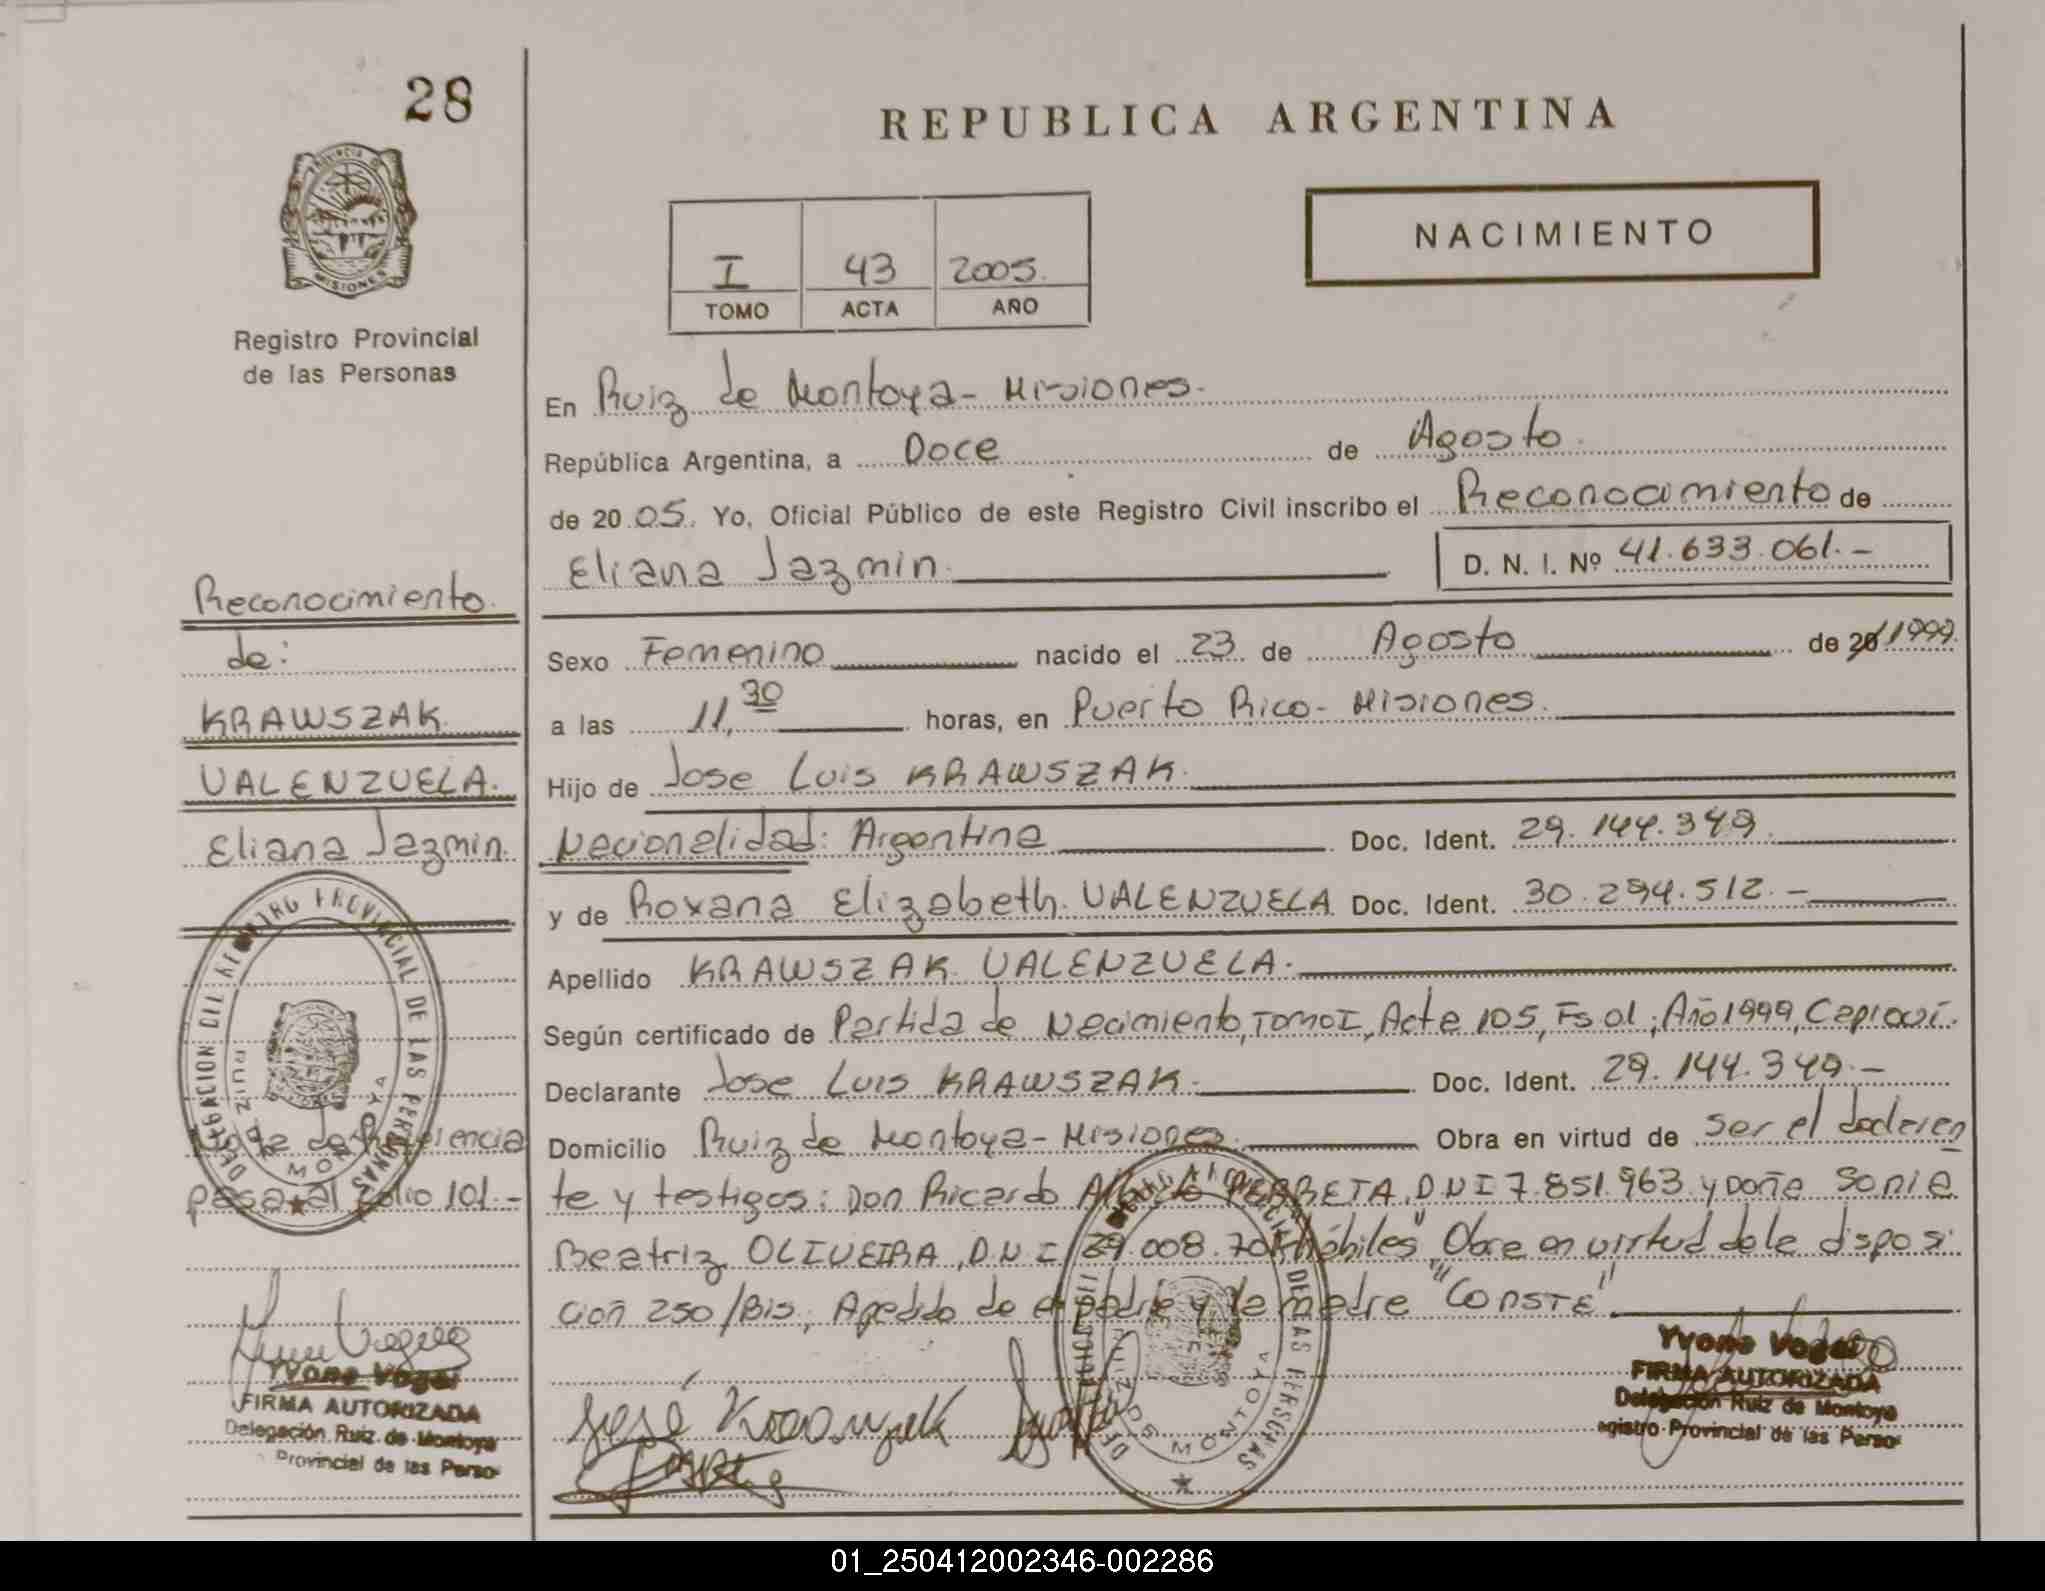 28
REPUBLICA ARGENTINA
PROVINCIA DE MISIONES
Registro Provincial
de las Personas
I 43 2005.
TOMO ACTA AÑO
NACIMIENTO
En Ruiz de Montoya - Misiones.
República Argentina, a Doce de Agosto.
de 2005. Yo, Oficial Público de este Registro Civil inscribo el Reconocimiento de
Eliana Jazmin. D. N. I. Nº 41.633.061.-
Sexo Femenino nacido el 23 de Agosto de 20/1999.
a las 11,30 horas, en Puerto Rico - Misiones.
Hijo de Jose Luis KRAWSZAK.
Nacionalidad: Argentina Doc. Ident. 29.144.349.
y de Roxana Elizabeth VALENZUELA Doc. Ident. 30.294.512.-
Apellido KRAWSZAK VALENZUELA.
Según certificado de Partida de Nacimiento, Tomo I, Acta 105, Fs 01, Año 1999, Capioví.
Declarante Jose Luis KRAWSZAK. Doc. Ident. 29.144.349.-
Domicilio Ruiz de Montoya - Misiones. Obra en virtud de ser el declaran
te y testigos: Don Ricardo PERRETA, DNI 7.851.963 y Doña Sonia
Beatriz OLIVEIRA, D.N.I. 29.008. hábiles" Obra en virtud de la disposi
ción 250/Bis, Apedido de el padre y la madre "CONSTE"
Reconocimiento.
de:
KRAWSZAK
VALENZUELA.
Eliana Jazmin.
Nota de Referencia
pasa al folio 101.-
DELEGACION DEL REGISTRO PROVINCIAL DE LAS PERSONAS
RUIZ DE MONTOYA
Yvone Vogel
FIRMA AUTORIZADA
Delegación Ruiz de Montoya
Provincial de las Perso
José Krawszak
DE LAS PERSONAS
RUIZ DE MONTOYA
Yvone Vogel
FIRMA AUTORIZADA
Delegación Ruiz de Montoya
egistro Provincial de las Perso
01_250412002346-002286